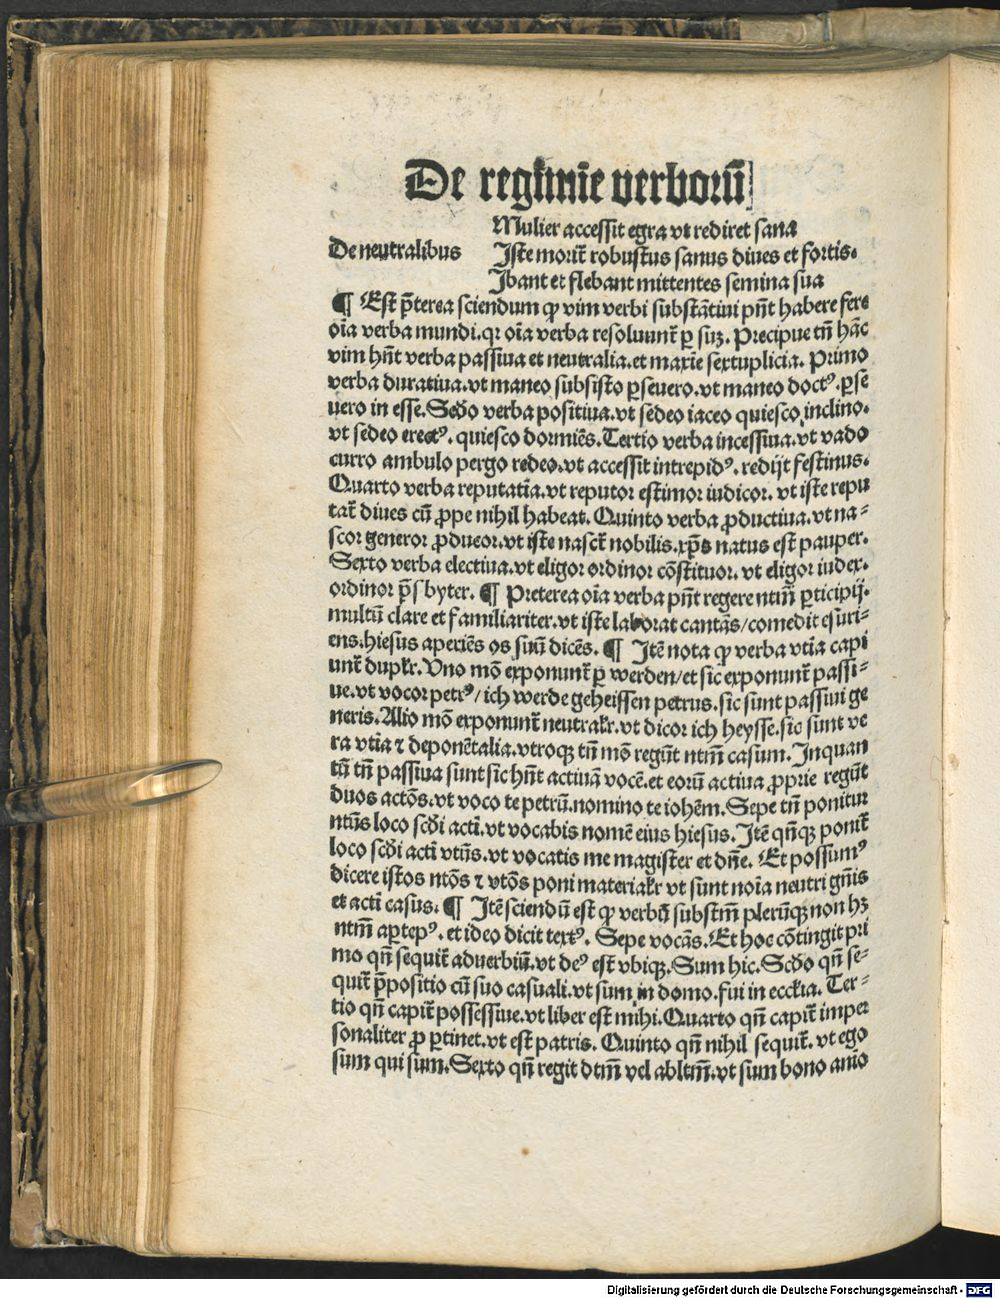 De regimīe verborū
Mulier accessit egra vt rediret sana
De neutralibus
Iste morit̄ robustus sanus diues et fortis.
Ibant et flebant mittentes semina sua
¶ Est p̄terea sciendum ꝙ vim verbi substātiui pn̄t habere fere
oīa verba mundi. qꝛ oīa verba resoluunt̄ ꝑ suꝫ. Precipue tn̄ hāc
vim hn̄t verba passiua et neutralia. et maxīe sextuplicia. Primo
verba duratiua. vt maneo subsisto ꝑseuero. vt maneo doctꝰ. ꝑse
uero in esse. Scd̄o verba positiua. vt sedeo iaceo quiesco inclino.
vt sedeo erectꝰ. quiesco dormiēs. Tertio verba incessiua. vt vado
curro ambulo pergo redeo. vt accessit intrepidꝰ. redijt festinus.
Quarto verba reputatīa. vt reputor estimor iudicor. vt iste repu
tat̄ diues cū ꝓpe nihil habeat. Quinto verba ꝓductiua. vt na-
scor generor ꝓducor. vt iste nascit̄ nobilis. xp̄s natus est pauper.
Sexto verba electiua. vt eligor ordinor cōstituor. vt eligor iudex.
ordinor p̄sbyter. ¶ Preterea oīa verba pn̄t regere ntm̄ ꝑticipij.
multū clare et familiariter. vt iste laborat cantās/comedit esuri-
ens. hiesus aperiēs os suū dicēs. ¶ Itē nota ꝙ verba vtīa capi
unt̄ duplr̄. Uno mō exponunt̄ ꝑ werden/et sic exponunt̄ passi-
ue. vt vocor petrꝰ/ich werde geheissen petrus. sic sunt passiui ge
neris. Alio mō exponunt̄ neutralr̄. vt dicor ich heysse. sic sunt ve
ra vtīa ⁊ deponētalia. vtroqꝫ tn̄ mō regūt ntm̄ casum. Inquan
tū tn̄ passiua sunt sic hn̄t actiuā vocē. et eorū actiua ꝓprie regūt
duos actōs. vt voco te petrū. nomino te iohēm. Sepe tn̄ ponitur
ntūs loco scd̄i acti. vt vocabis nomē eius hiesus. Itē qn̄qꝫ ponit̄
loco scd̄i acti vtūs. vt vocatis me magister et dn̄e. Et possumꝰ
dicere istos ntōs ⁊ vtōs poni materialr̄ vt sunt noīa neutri gn̄is
et acti casus. ¶ Itē sciendū est ꝙ verbū substm̄ plerūqꝫ non hꝫ
ntm̄ a ꝑte pꝰ. et ideo dicit textꝰ. Sepe vocās. Et hoc cōtingit pri
mo qn̄ sequit̄ aduerbiū. vt deꝰ est vbiqꝫ. Sum hic. Scd̄o qn̄ se-
quit̄ p̄positio cū suo casuali. vt sum in domo. fui in ecclīa. Ter-
tio qn̄ capit̄ possessiue. vt liber est mihi. Quarto qn̄ capit̄ imper
sonaliter ꝓ ꝑtinet. vt est patris. Quinto qn̄ nihil sequit̄. vt ego
sum qui sum. Sexto qn̄ regit dtm̄ vel abltm̄. vt sum bono aīo
Digitalisierung gefördert durch die Deutsche Forschungsgemeinschaft - DFG